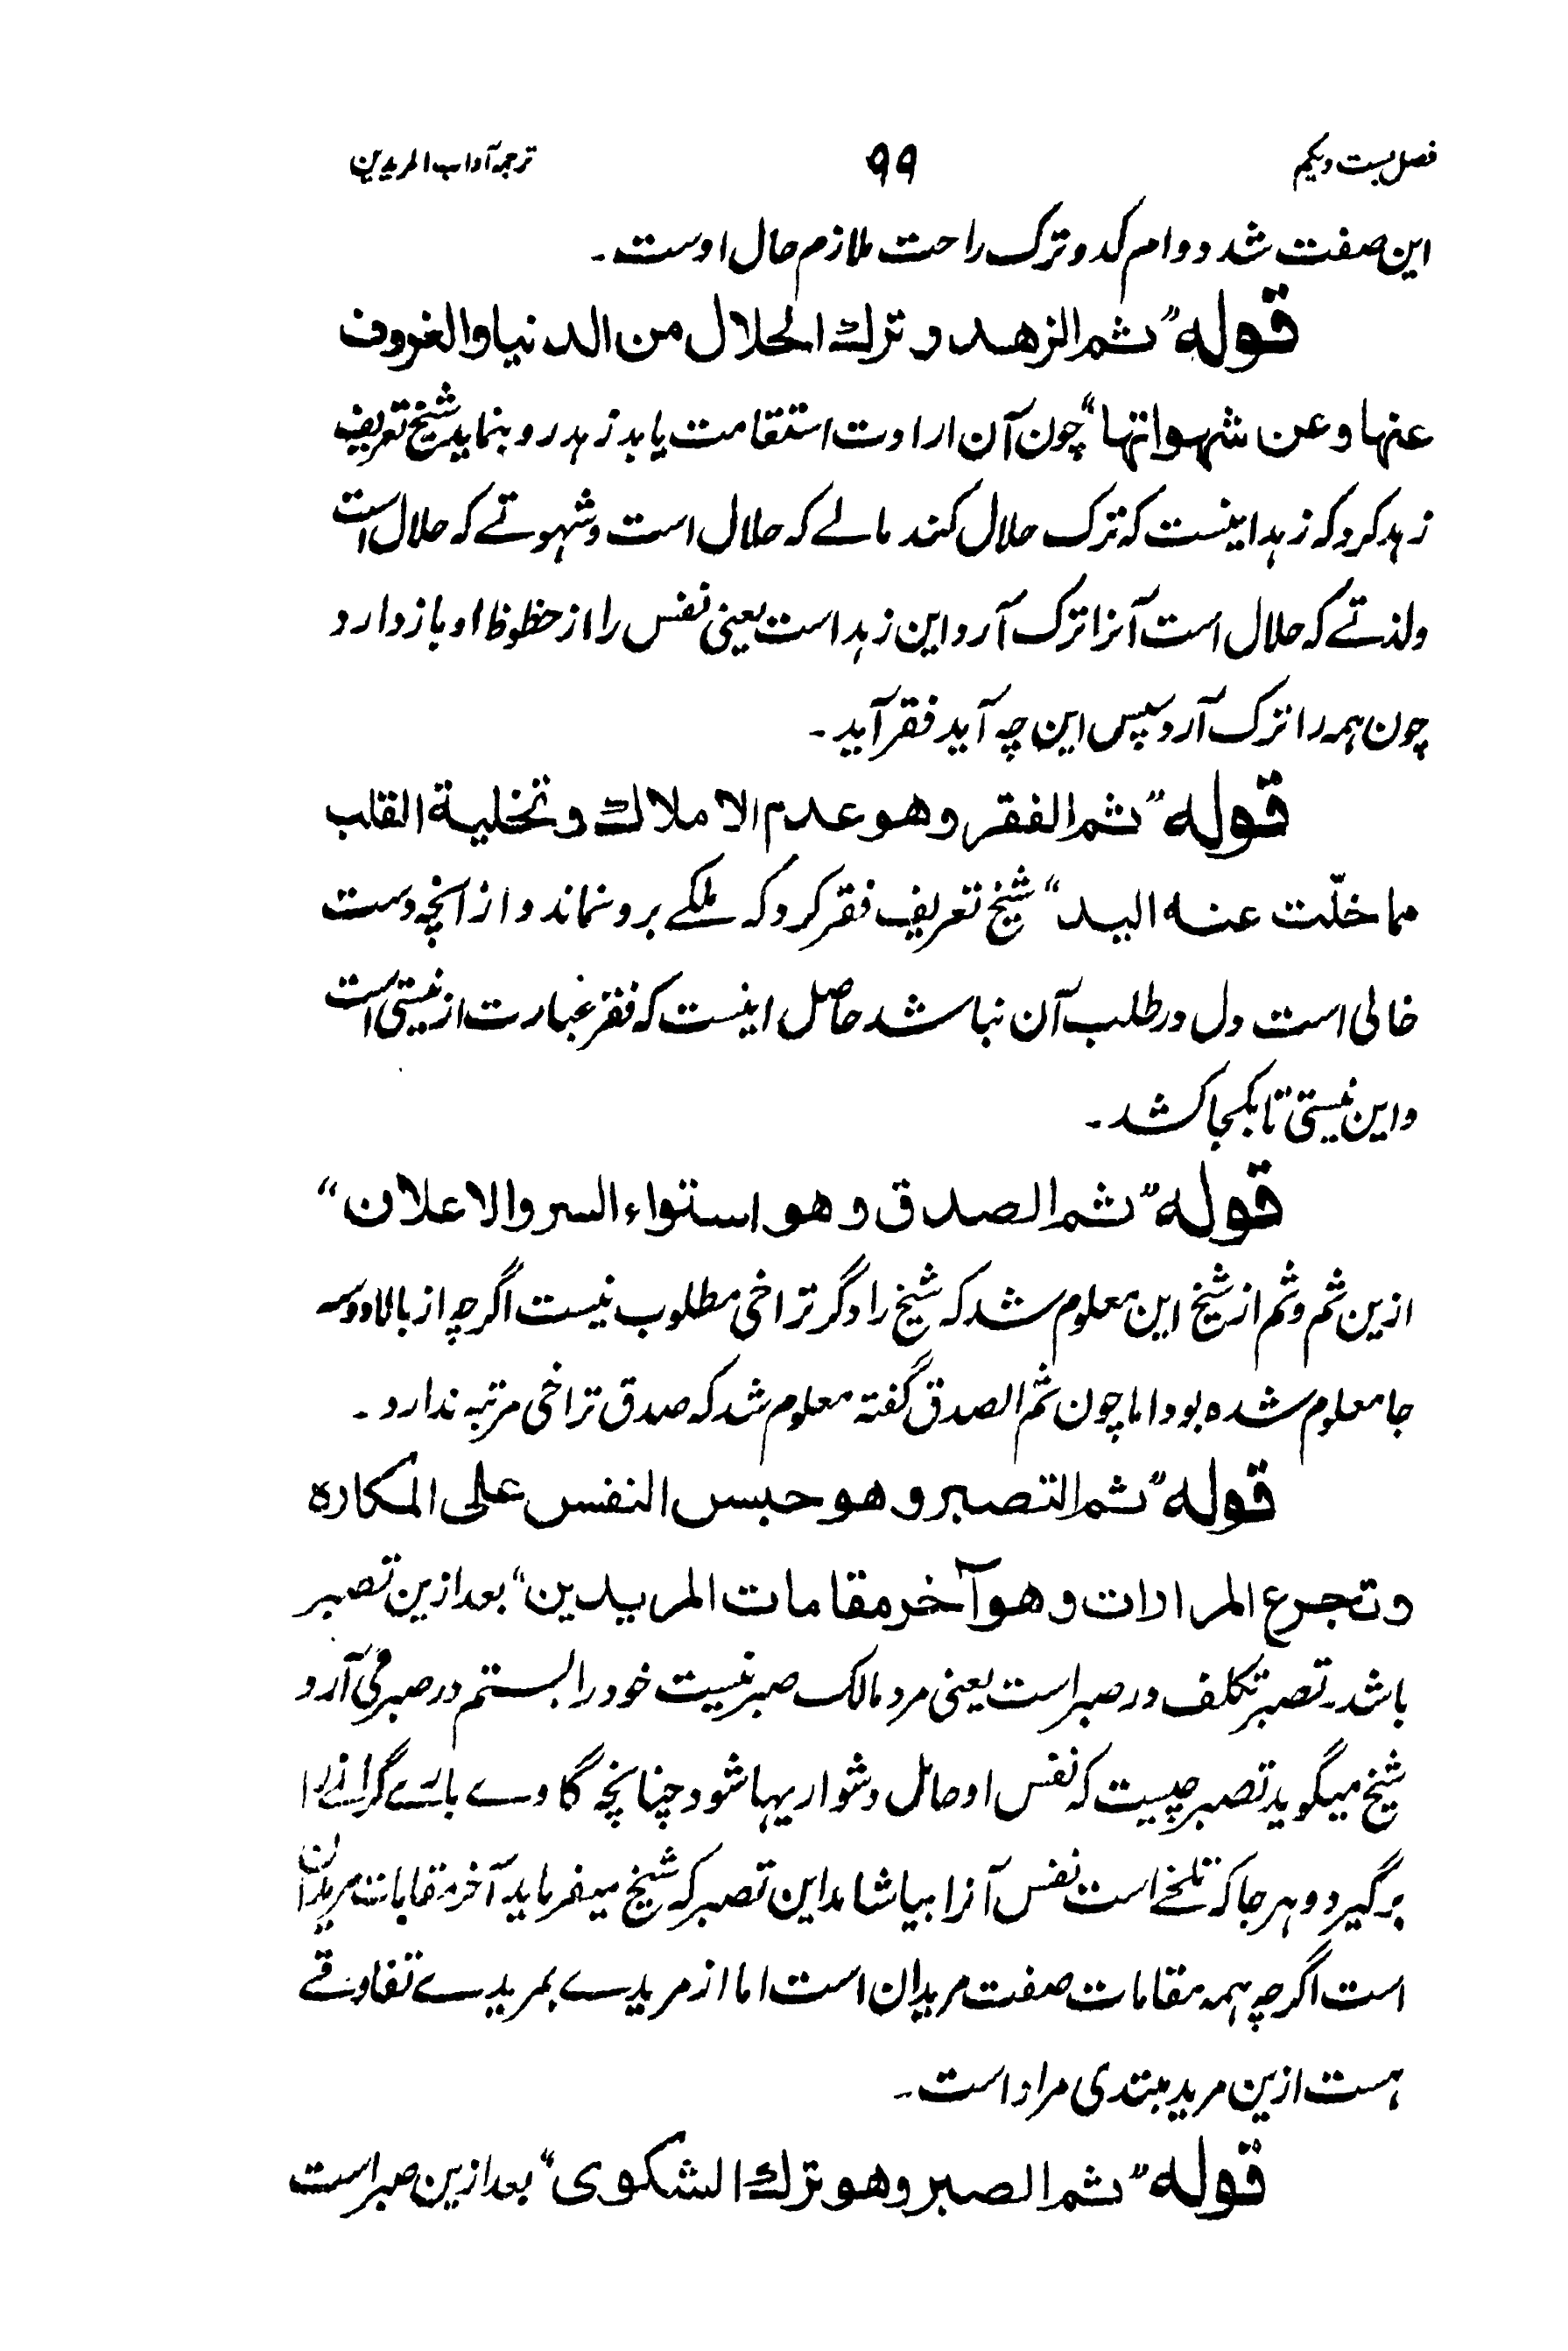 فصل بست ویکم ۹۹ ترجمہ آداب المریدین
این صفت شد دوام کد و ترک راحت ملازم حال اوست۔
قولہ ”ثم الزهد و ترك الحلال من الدنيا والعزوف
عنها و عن شهواتها“ چون آن ارادت استقامت یابد زہد رو بنماید شیخ تعریف
زہد کرد کہ زہد اینست کہ ترک حلال کند مالے کہ حلال است وشہوتے کہ حلال است
ولذتے کہ حلال است آنرا ترک آرد این زہد است یعنی نفس را از حظوظ او باز دارد
چون ہمہ را ترک آرد سپس این چہ آید فقر آید۔
قولہ ”ثم الفقر و هو عدم الاملاك و تخلية القلب
مما خلّت عنه اليد“ شیخ تعریف فقر کرد کہ ملکے برو نماند و از انچہ دست
خالی است دل در طلب آن نباشد حاصل اینست کہ فقر عبارت از نیستی است
و این نیستی تا بکجا کشد۔
قولہ ”ثم الصدق و هو استواء السر والاعلان“
ازین ثم وثم از شیخ این معلوم شد کہ شیخ را دگر تراخی مطلوب نیست اگرچہ از بالا دوسہ
جا معلوم شدہ بود اما چون ثم الصدق گفتہ معلوم شد کہ صدق تراخی مرتبہ ندارد۔
قولہ ”ثم التصبر و هو حبس النفس على المكاره
و تجرع المرارات و هو آخر مقامات المريدين“ بعد ازین تصبر
باشد۔ تصبر تکلف در صبر است یعنی مرد مالک صبر نیست خود را بستم در صبر می آرد
شیخ میگوید تصبر چیست کہ نفس او حامل دشواریہا شود چنانچہ گاوے بارے گرانے را
برگیرد و ہر جا کہ تلخے است نفس آنرا بیاشامد این تصبر کہ شیخ میفرماید آخر مقامات مریدان
است اگرچہ ہمہ مقامات صفت مریدان است اما از مریدے بمریدے تفاوتے
ہست ازین مرید مبتدی مراد است۔
قولہ ”ثم الصبر و هو ترك الشكوى“ بعد ازین صبر است